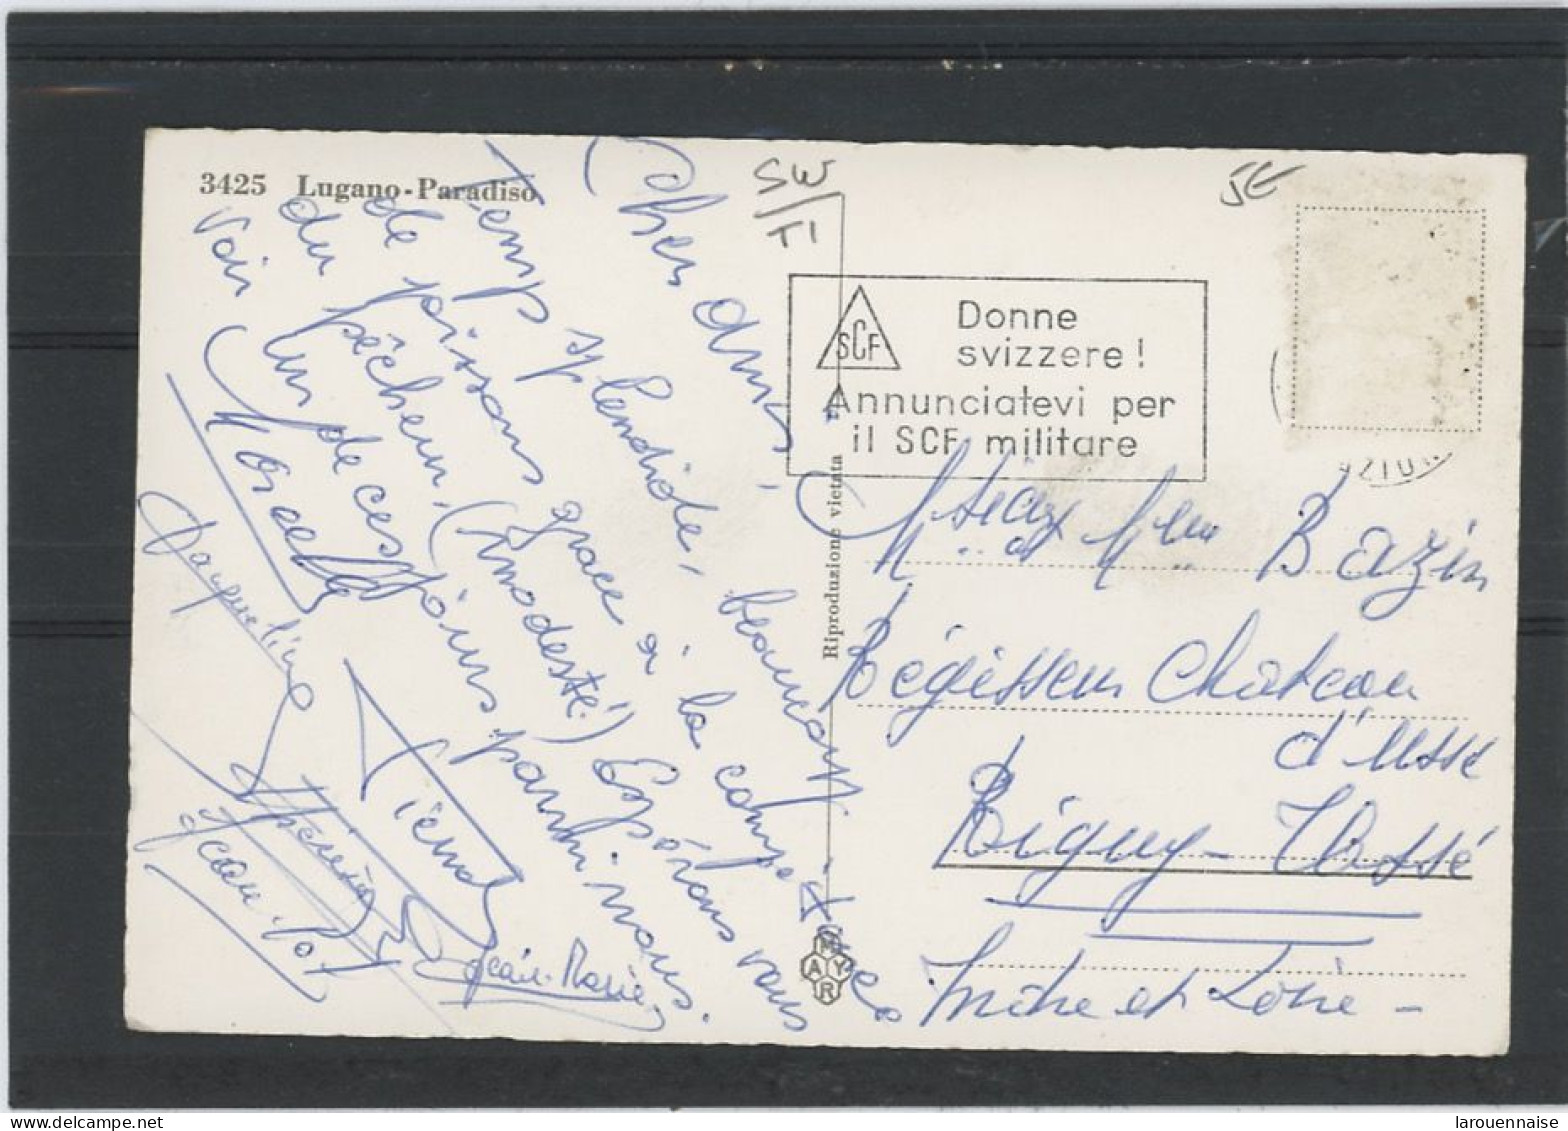 3425 Lugano-Paradiso
Chers amis,
Temp splendide, beaucoup
de poissons grace à la compétence
du pêcheur. (modeste!) Espérons vous
voir un de ces jours parmi nous.
Jacqueline
Pierre
Thérèse
Jean-Marie
Jean-Pol
SW/F
5€
SCF
Donne
svizzere!
Annunciatevi per
il SCF militare
Riproduzione vietata
MAYR
Bazin
Régisseur Chateau
d'Ussé
Rigny-Ussé
Indre et Loire -
delcampe.net
larouennaise